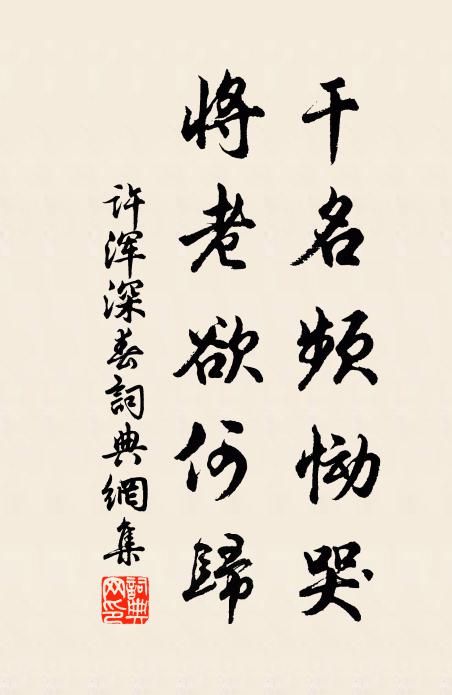 干名频恸哭
将老欲何歸
许浑深春詞典網集
詞典网印